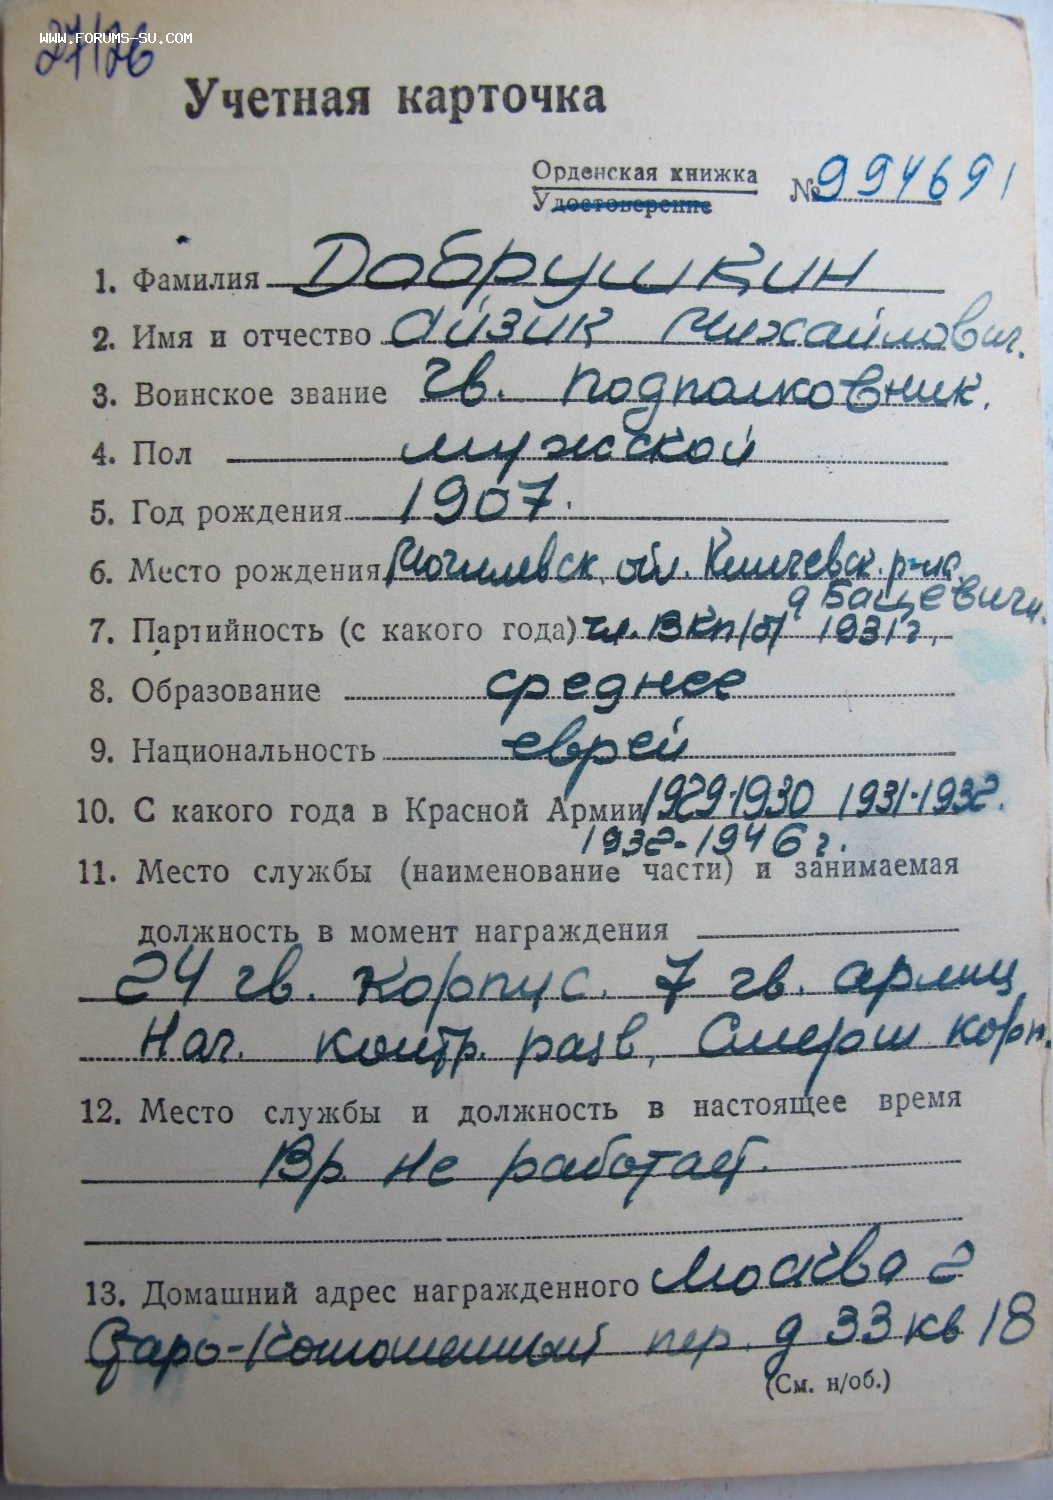 WWW.FORUMS-SU.COM
27/26
Учетная карточка
Орденская книжка № 994691
Удостоверение
1. Фамилия Добрушкин
2. Имя и отчество Айзик Михайлович.
3. Воинское звание гв. подполковник.
4. Пол мужской
5. Год рождения 1907.
6. Место рождения Могилевск. обл. Кличевск. р-на
д Бацевичи.
7. Партийность (с какого года) чл. ВКП/б/ 1931 г.
8. Образование среднее
9. Национальность еврей
10. С какого года в Красной Армии 1929-1930 1931-1932.
1932-1946 г.
11. Место службы (наименование части) и занимаемая
должность в момент награждения
24 гв. корпус. 7 гв. армии
Нач. контр. разв, Смерш корп.
12. Место службы и должность в настоящее время
Вр. не работает.
13. Домашний адрес награжденного Москва 2
Старо-Конюшенный пер. д 33 кв 18
(См. н/об.)